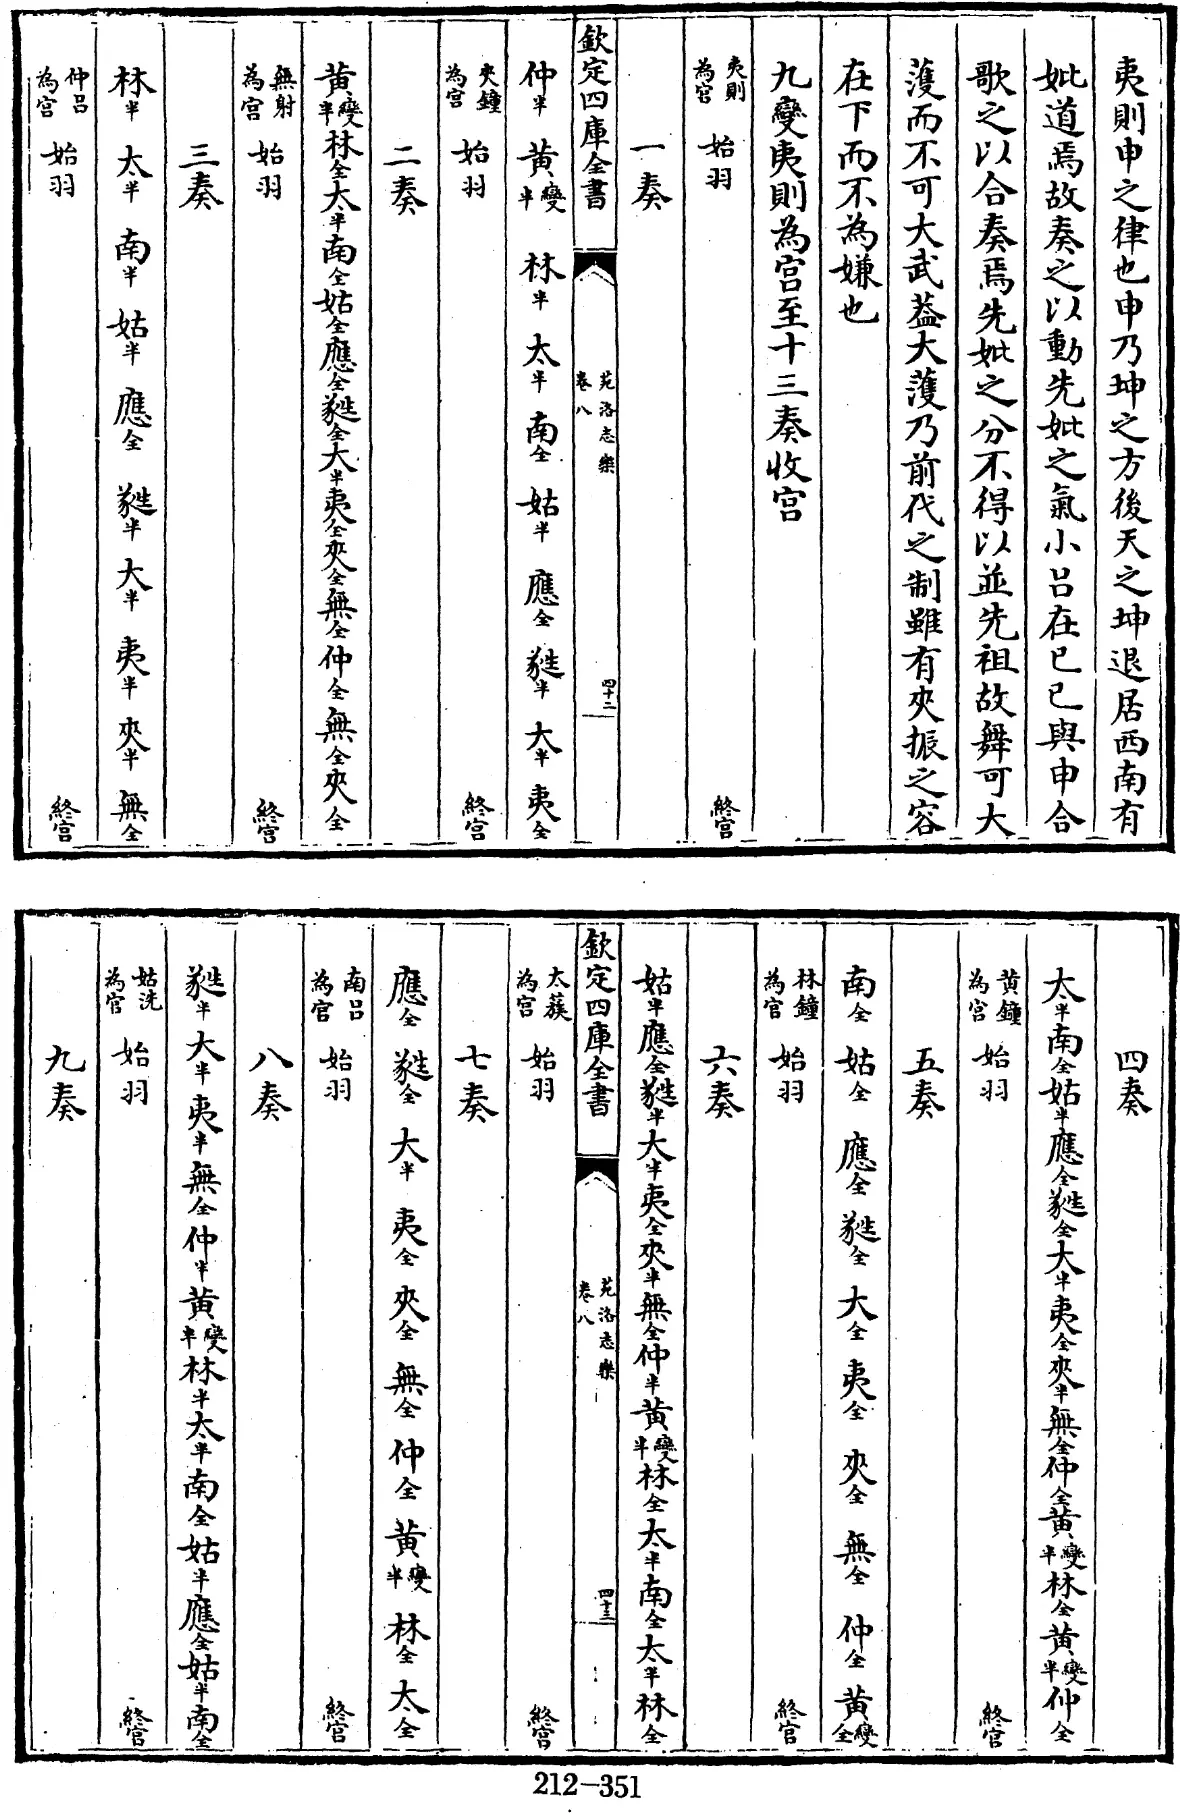 夷則申之律也申乃坤之方後天之坤退居西南有
妣道焉故奏之以動先妣之氣小呂在巳巳與申合
歌之以合奏焉先妣之分不得以並先祖故舞可大
濩而不可大武蓋大濩乃前代之制雖有夾振之容
在下而不為嫌也
九變夷則為宮至十三奏收宮
夷則為宮 始羽 終宮
一奏
欽定四庫全書 苑洛志樂 卷八 四十二
仲半 黃變半 林半 太半 南全 姑半 應全 蕤半 大半 夷全
夾鐘為宮 始羽 終宮
二奏
黃變半 林全 太半 南全 姑全 應全 蕤全 大半 夷全 夾全 無全 仲全 無全 夾全
無射為宮 始羽 終宮
三奏
林半 太半 南半 姑半 應全 蕤半 大半 夷半 夾半 無全
仲呂為宮 始羽 終宮
四奏
太半 南全 姑半 應全 蕤全 大半 夷全 夾半 無全 仲全 黃變半 林全 黃變半 仲全
黃鐘為宮 始羽 終宮
五奏
南全 姑全 應全 蕤全 大全 夷全 夾全 無全 仲全 黃變全
林鐘為宮 始羽 終宮
六奏
姑半 應全 蕤半 大半 夷全 夾半 無全 仲半 黃變半 林全 太半 南全 太半 林全
欽定四庫全書 苑洛志樂 卷八 四十三
太蔟為宮 始羽 終宮
七奏
應全 蕤全 大半 夷全 夾全 無全 仲全 黃變半 林全 太全
南呂為宮 始羽 終宮
八奏
蕤半 大半 夷半 無全 仲半 黃變半 林半 太半 南全 姑半 應全 姑半 南全
姑洗為宮 始羽 終宮
九奏
212-351